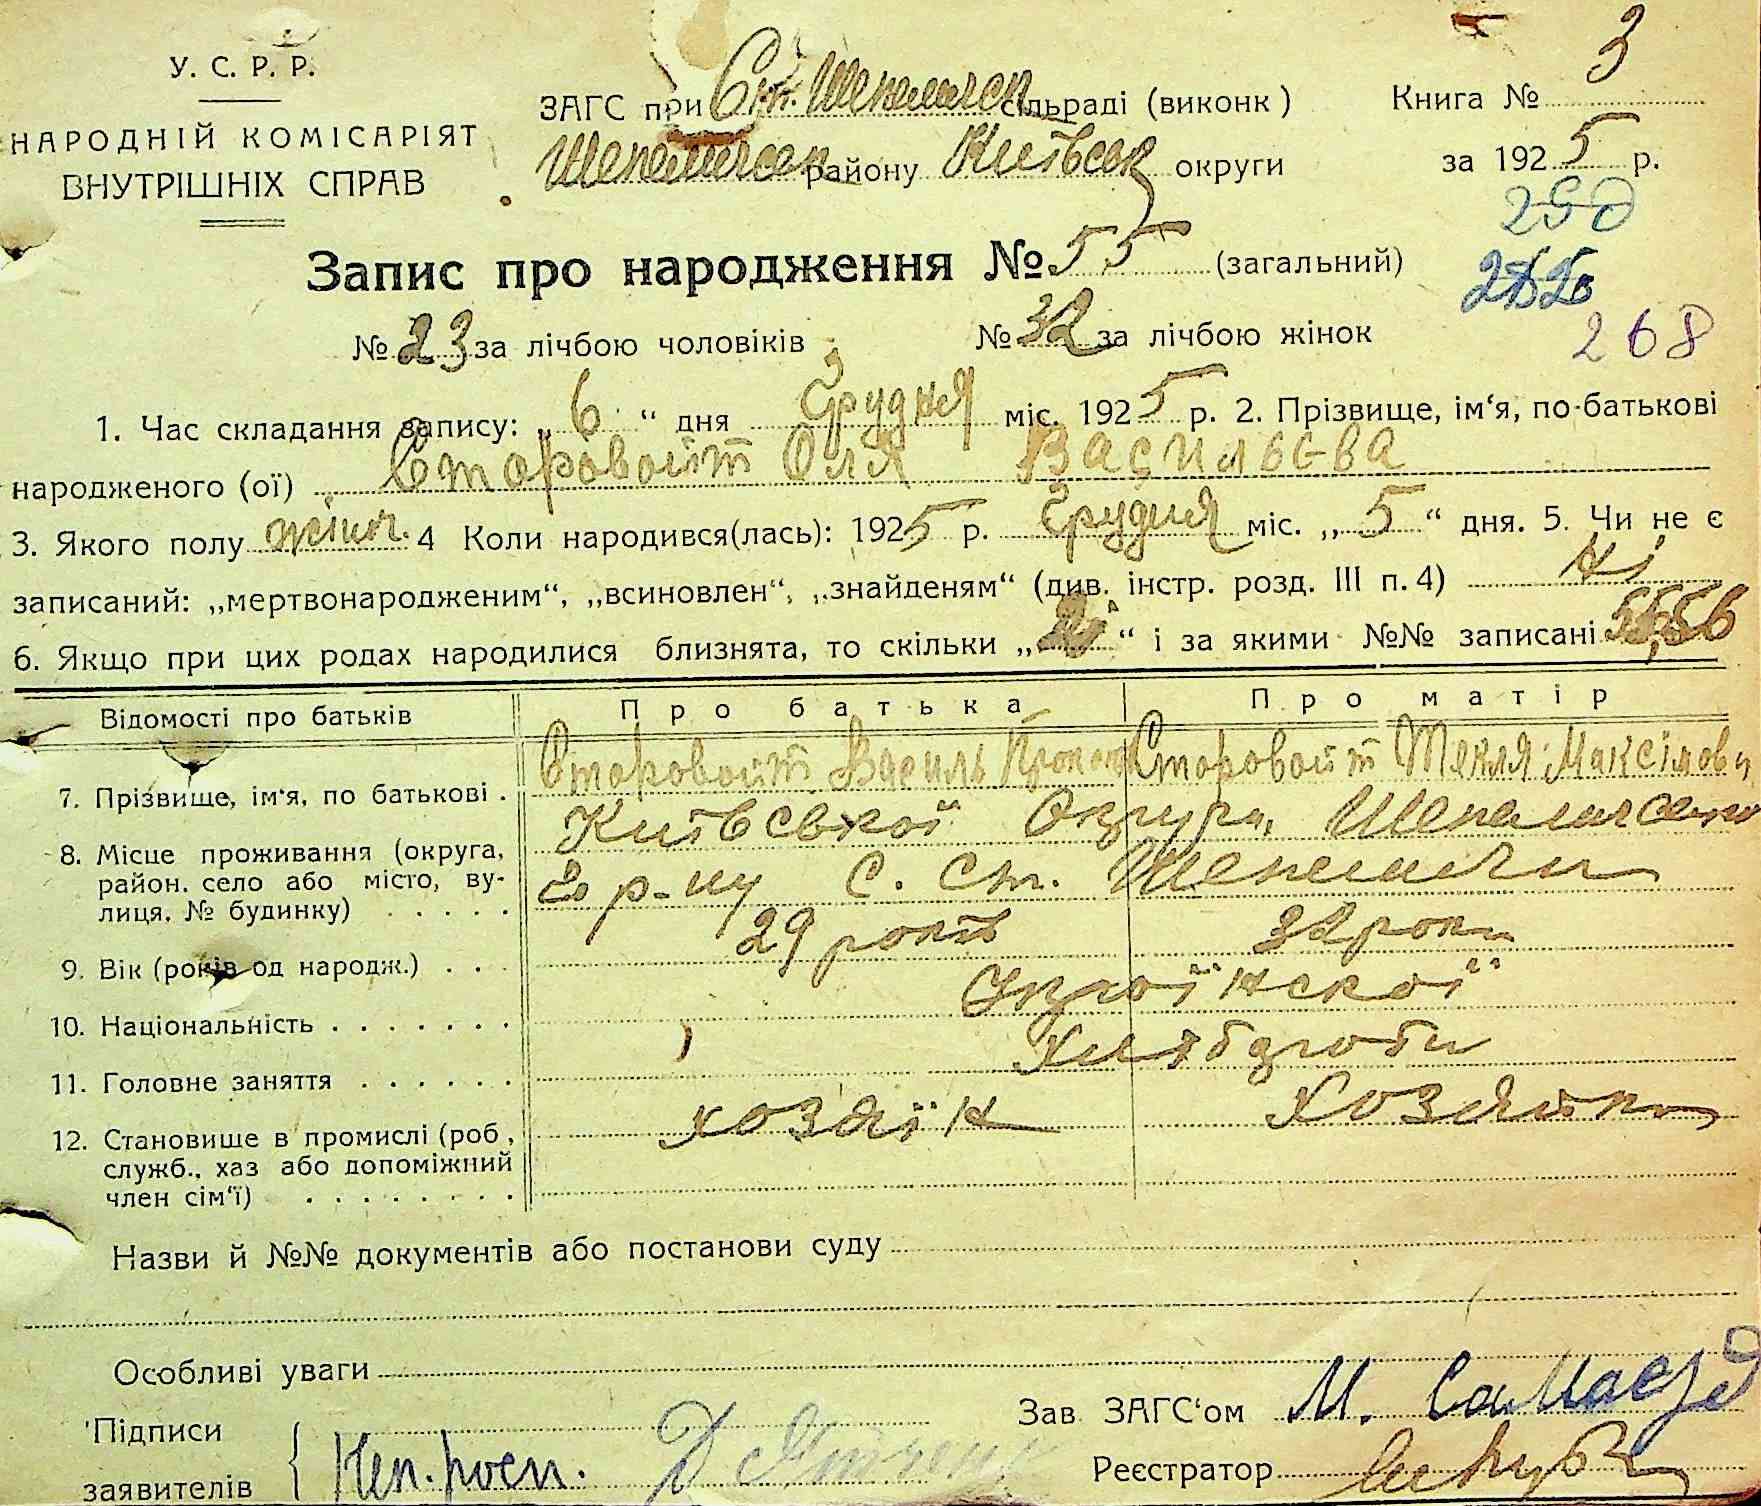 У. С. Р. Р.
НАРОДНІЙ КОМІСАРІЯТ
ВНУТРІШНІХ СПРАВ
ЗАГС при Ст. Шепелическ сільраді (виконк)
Шепелическ району Київськ округи
Книга № 3
за 1925 р.
268
Запис про народження № 55 (загальний)
№ 23 за лічбою чоловіків № 32 за лічбою жінок
1. Час складання запису: „6“ дня Грудня міс. 1925 р. 2. Прізвище, ім‘я, по-батькові
народженого (ої) Старовойт Оля Васильєва
3. Якого полу жіноч. 4 Коли народився(лась): 1925 р. Грудня міс. „5“ дня. 5. Чи не є
записаний: „мертвонародженим“, „всиновлен“, „знайденям“ (див. інстр. розд. III п. 4) Ні
6. Якщо при цих родах народилися близнята, то скільки „2“ і за якими №№ записані 55,56
Відомості про батьків Про батька Про матір
7. Прізвище, ім‘я, по батькові . Старовойт Василь Старовойт Текля Максімов
8. Місце проживання (округа, район. село або місто, вулиця, № будинку) . . . . . Київської Округи, Шепелическо
го р-ну С. Ст. Шепеличи
9. Вік (років од народж.) . . . 29 років 32 роки
10. Національність . . . . . . . Української
11. Головне заняття . . . . . . Хлібороби
12. Становище в промислі (роб, служб., хаз або допоміжний член сім‘ї) . . . . . . . . хозяїн Хозяйка
Назви й №№ документів або постанови суду
Особливі уваги
Підписи
заявителів Неп. росп.
Зав ЗАГС‘ом М.
Реєстратор